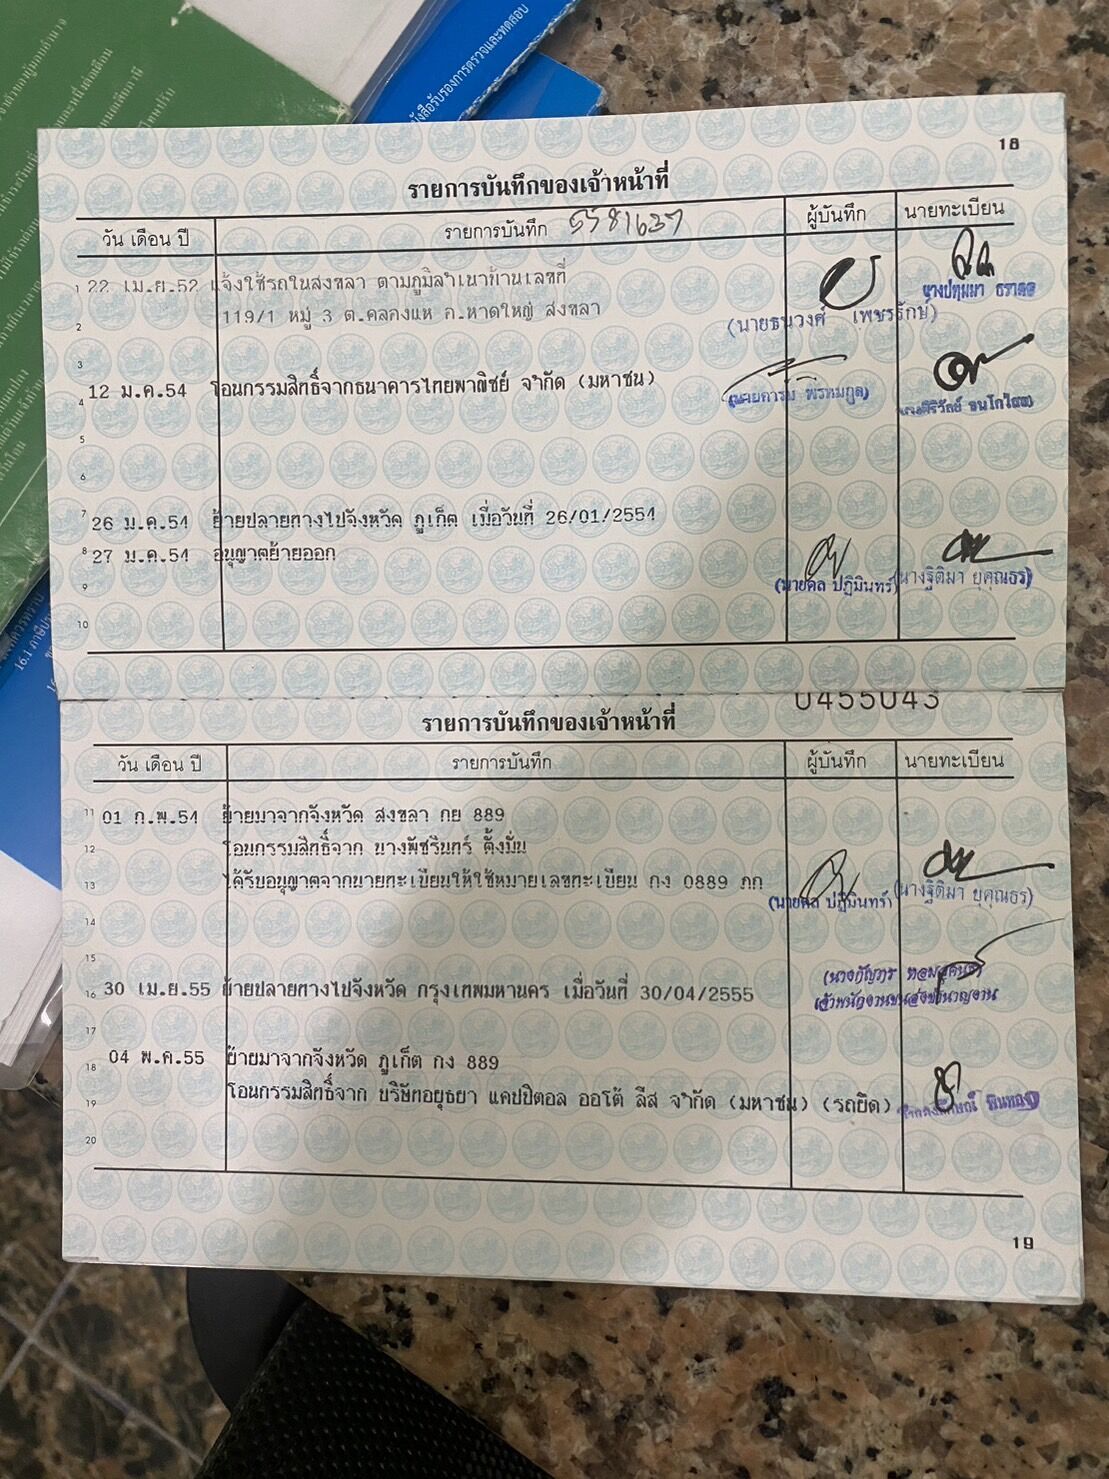 18
รายการบันทึกของเจ้าหน้าที่
วัน เดือน ปี รายการบันทึก 5581637 ผู้บันทึก นายทะเบียน
1 22 เม.ย.52 แจ้งใช้รถในสงขลา ตามภูมิลำเนาบ้านเลขที่
2 119/1 หมู่ 3 ต.คลองแห อ.หาดใหญ่ สงขลา
(นายธนวงศ์ เพชรรักษ์)
นางปทุมมา
3
4 12 ม.ค.54 โอนกรรมสิทธิ์จากธนาคารไทยพาณิชย์ จำกัด (มหาชน)
5
6
7 26 ม.ค.54 ย้ายปลายทางไปจังหวัด ภูเก็ต เมื่อวันที่ 26/01/2554
8 27 ม.ค.54 อนุญาตย้ายออก
9 (นายดล ปฏิมินทร์) (นางฐิติมา ยุคุณธร)
10
0455043
รายการบันทึกของเจ้าหน้าที่
วัน เดือน ปี รายการบันทึก ผู้บันทึก นายทะเบียน
11 01 ก.พ.54 ย้ายมาจากจังหวัด สงขลา กย 889
12 โอนกรรมสิทธิ์จาก นางพัชรินทร์ ตั้งมั่น
13 ได้รับอนุญาตจากนายทะเบียนให้ใช้หมายเลขทะเบียน กง 0889 ภก
(นายดล ปฏิมินทร์) (นางฐิติมา ยุคุณธร)
14
15
16 30 เม.ย.55 ย้ายปลายทางไปจังหวัด กรุงเทพมหานคร เมื่อวันที่ 30/04/2555
เจ้าพนักงานขนส่งชำนาญงาน
17
18 04 พ.ค.55 ย้ายมาจากจังหวัด ภูเก็ต กง 889
19 โอนกรรมสิทธิ์จาก บริษัทอยุธยา แคปปิตอล ออโต้ ลีส จำกัด (มหาชน) (รถยึด)
20
19